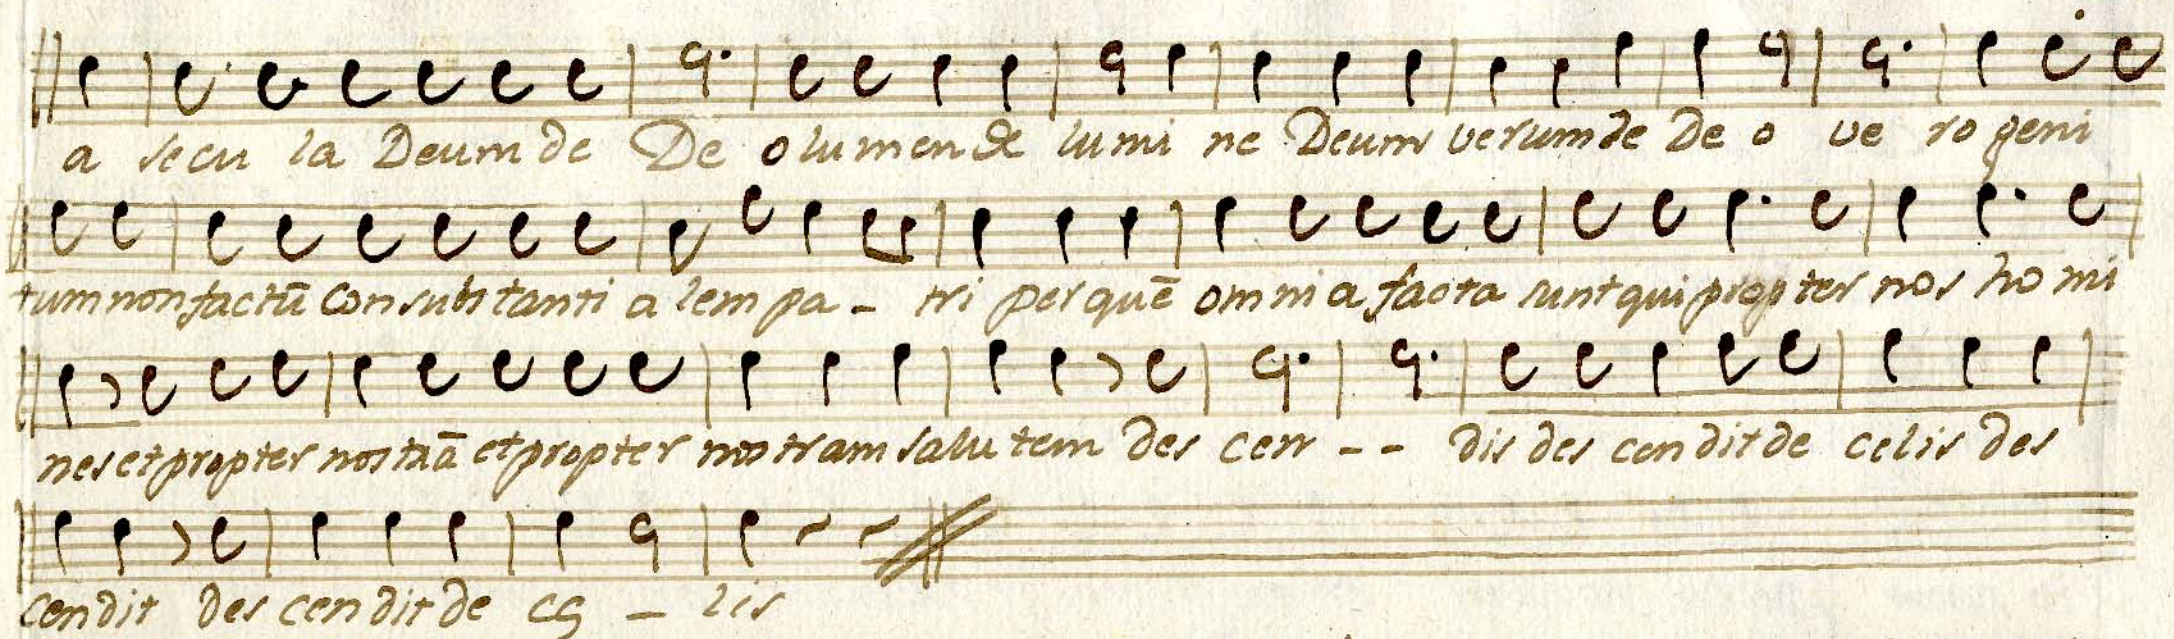 a secu la Deum de De o lumen de lumi ne Deum verum de De o ve ro geni
tum non factū consubstanti a lem pa - tri per quē omnia facta sunt qui propter nos ho mi
nes et propter nostrā et propter nostram salutem des cen - - dis des cendit de celis des
cendit des cendit de ce - lis